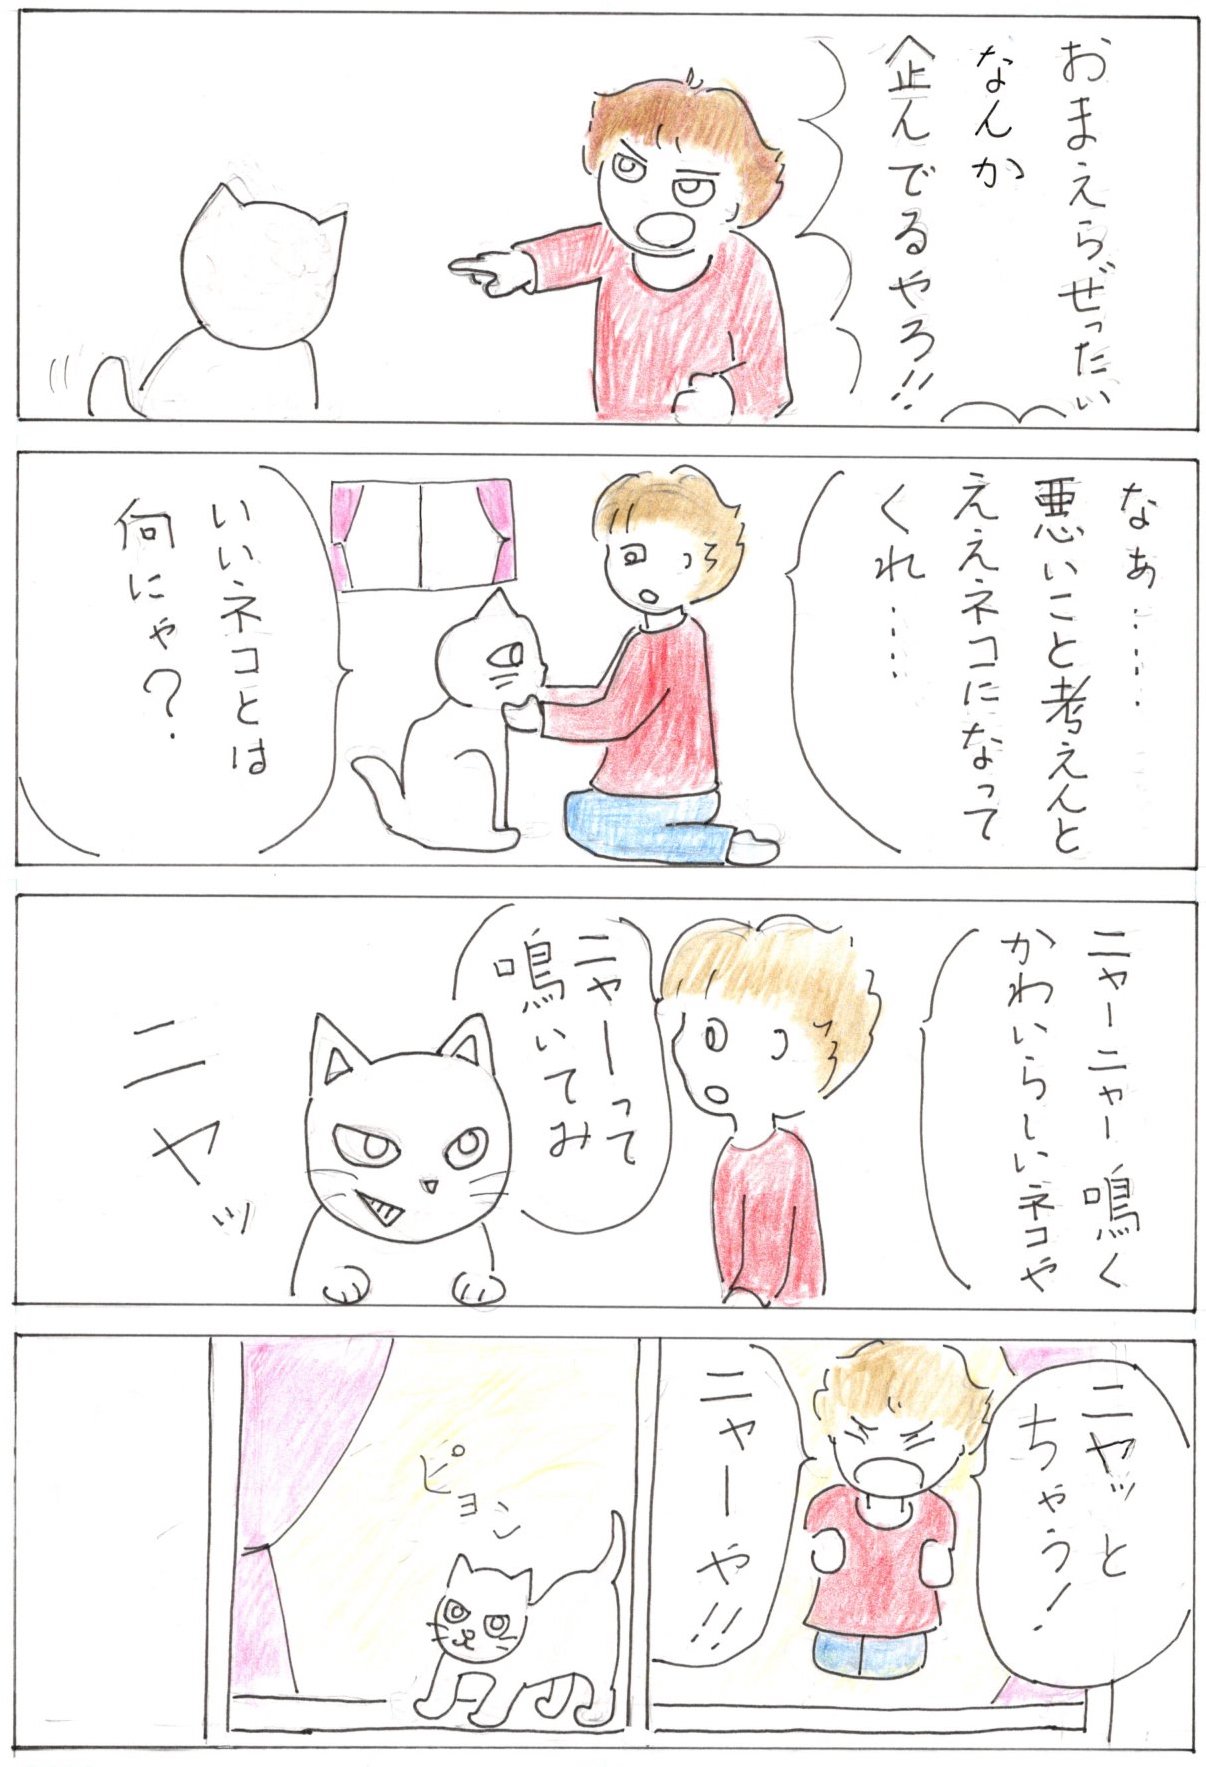 おまえらぜったい
なんか
企んでるやろ!!
なぁ‥‥‥
悪いこと考えんと
ええネコになって
くれ‥‥‥
いいネコとは
何にゃ?
ニャーニャー鳴く
かわいらしいネコや
ニャーって
鳴いてみ
ニヤッ
ニヤッと
ちゃう!
ニャーや!!
ピョン